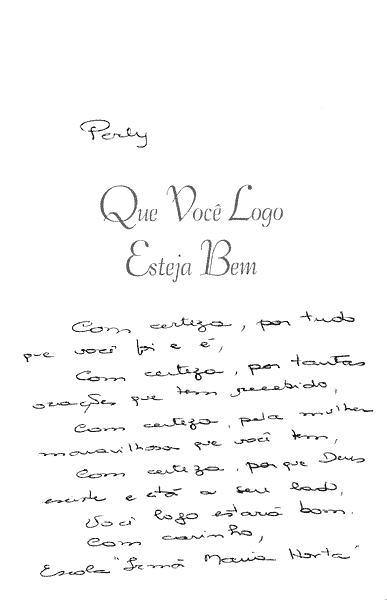 Perly
Que Você Logo
Esteja Bem
Com certeza, por tudo
que você foi e é,
Com certeza, por tantas
orações que tem recebido,
Com certeza, pela mulher
maravilhosa que você tem,
Com certeza, porque Deus
existe e está a seu lado,
Você logo estará bom.
Com carinho,
Escola "Irmã Maria Horta"